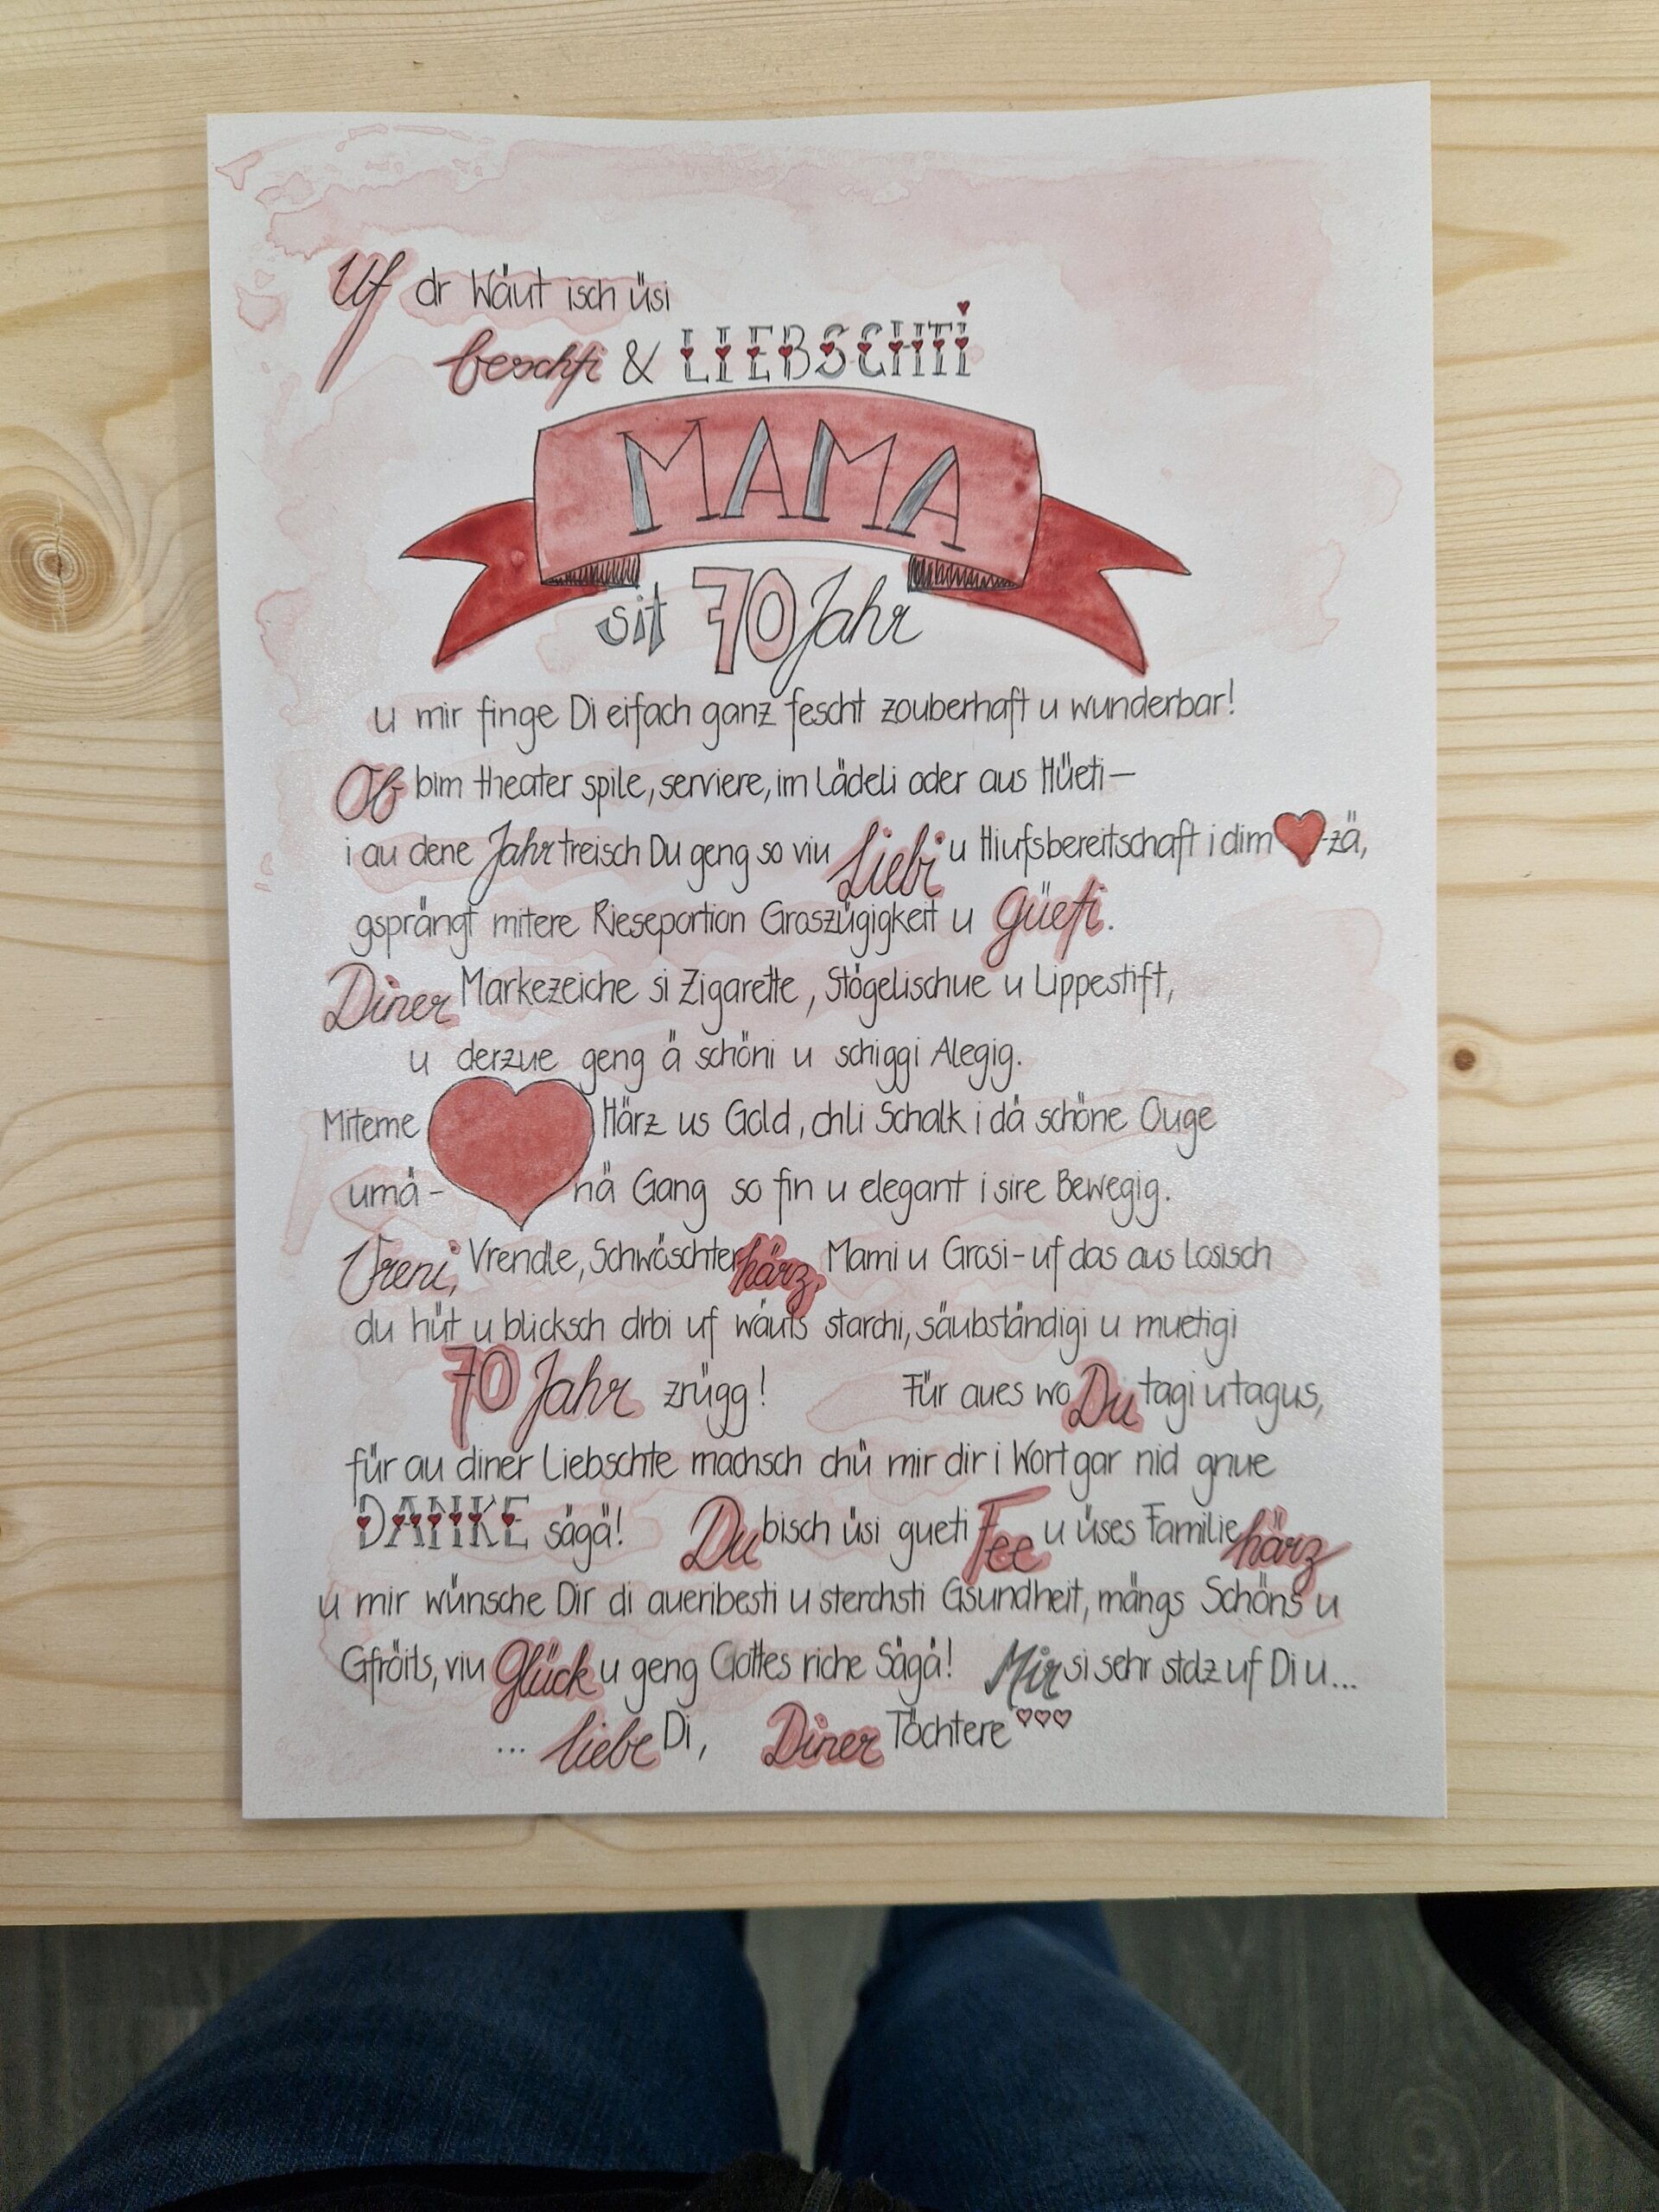 Uf dr Wäut isch üsi
beschti & LIEBSCHTi
MAMA
sit 70 Jahr
u mir finge Di eifach ganz fescht zouberhaft u wunderbar!
Ob bim theater spile, serviere, im Lädeli oder aus Hüeti–
i au dene Jahr treisch Du geng so viu Liebi u Hiufsbereitschaft i dim ♥-zä,
gsprängt mitere Rieseportion Groszügigkeit u Güeti.
Diner Markezeiche si Zigarette, Stögelischue u Lippestift,
u derzue geng ä schöni u schiggi Alegig.
Miteme Härz us Gold, chli Schalk i dä schöne Ouge
umä- nä Gang so fin u elegant i sire Bewegig.
Vreni, Vrendle, Schwöschterhärz, Mami u Grosi-uf das aus Losisch
du hüt u blicksch drbi uf wäuts starchi, säubständigi u muetigi
70 Jahr zrügg! Für aues wo Du tagi u tagus,
für au diner Liebschte machsch chü mir dir i Wort gar nid gnue
DANKE sägä! Du bisch üsi gueti Fee u üses Familiehärz
u mir wünsche Dir di aueribesti u sterchsti Gsundheit, mängs Schöns u
Gfröits, viu Glück u geng Gottes riche Sägä! Mir si sehr stolz uf Di u...
... liebe Di, Diner Töchtere ♡♡♡